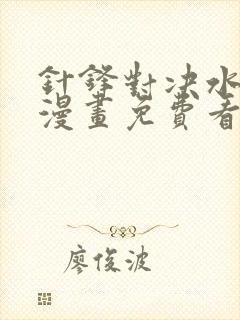 針鋒對決水
漫畫免費看
廖俊波